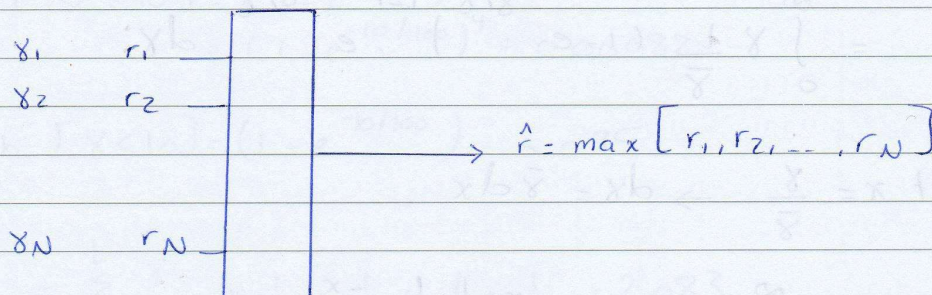 γ₁ r₁
γ₂ r₂
r̂ = max [r₁, r₂, ..., r_N]
γ_N r_N